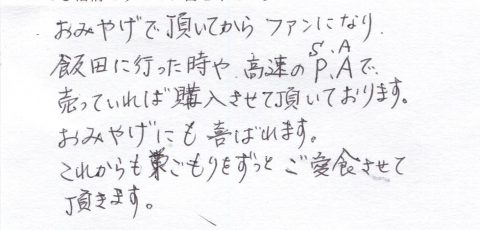 おみやげで頂いてから ファンになり、
飯田に行った時や、高速のS.A P.Aで、
売っていれば購入させて頂いております。
おみやげにも喜ばれます。
これからも巣ごもりをずっと ご愛食させて
頂きます。